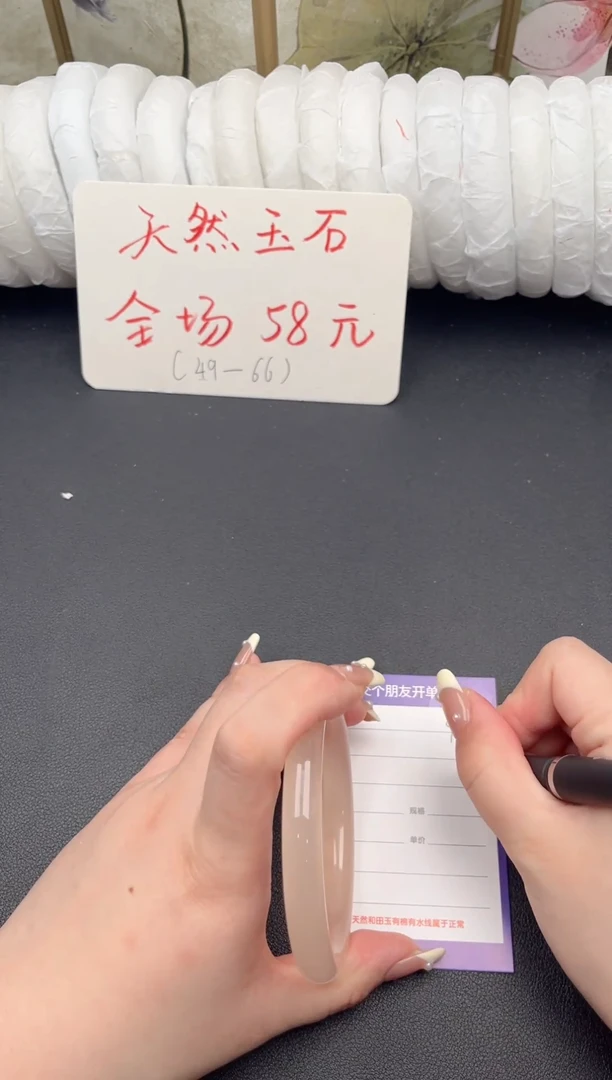 天然玉石
全场 58元
(49-66)
个朋友开单
规格
单价
天然和田玉有棉有水线属于正常